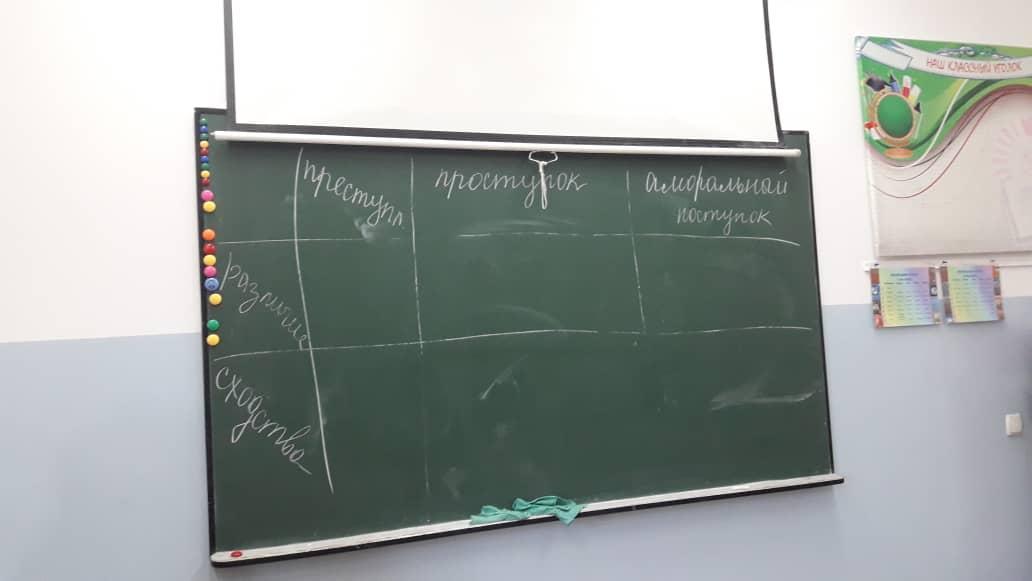 НАШ КЛАССНЫЙ УГОЛОК
преступл.
проступок
аморальный
поступок
различие
сходство